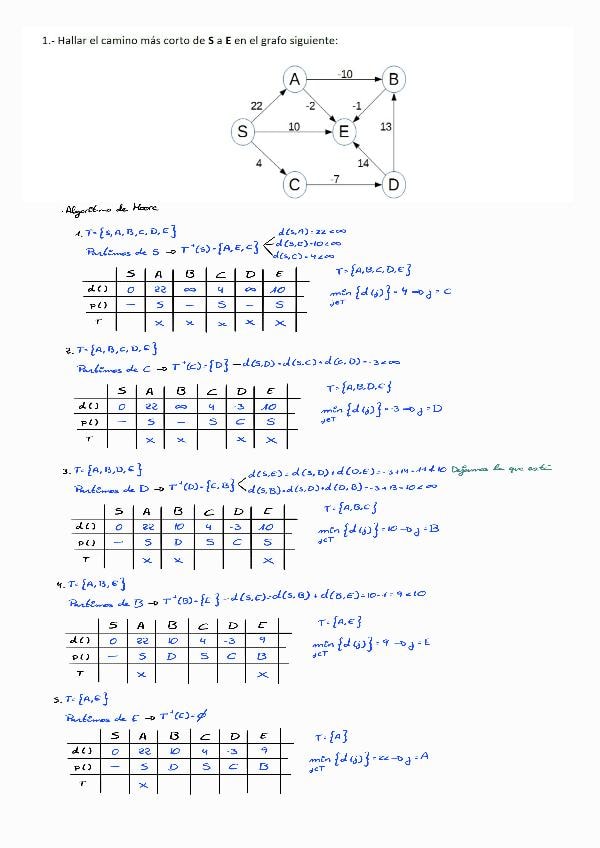 1.- Hallar el camino más corto de S a E en el grafo siguiente:
-10
A B
22 -2 -1
S 10 E 13
4 14
C -7 D
· Algoritmo de Moore
1. T={S,A,B,C,D,E}
Partimos de S → Γ⁺(S)={A,E,C}
d(S,A)=22<∞
d(S,E)=10<∞
d(S,C)=4<∞
S A B C D E
d() 0 22 ∞ 4 ∞ 10
p() – S – S – S
T x x x x x
T={A,B,C,D,E}
min{d(j)}=4 → j=C
j∈T
2. T={A,B,C,D,E}
Partimos de C → Γ⁺(C)={D} – d(S,D)=d(S,C)+d(C,D)=-3<∞
S A B C D E
d() 0 22 ∞ 4 -3 10
p() – S – S C S
T x x x x
T={A,B,D,E}
min{d(j)}=-3 → j=D
j∈T
3. T={A,B,D,E}
Partimos de D → Γ⁺(D)={E,B}
d(S,E)=d(S,D)+d(D,E)=-3+14=11≮10 Dejamos lo que está
d(S,B)=d(S,D)+d(D,B)=-3+13=10<∞
S A B C D E
d() 0 22 10 4 -3 10
p() – S D S C S
T x x x
T={A,B,E}
min{d(j)}=10 → j=B
j∈T
4. T={A,B,E}
Partimos de B → Γ⁺(B)={E} – d(S,E)=d(S,B)+d(B,E)=10-1=9<10
S A B C D E
d() 0 22 10 4 -3 9
p() – S D S C B
T x x
T={A,E}
min{d(j)}=9 → j=E
j∈T
5. T={A,E}
Partimos de E → Γ⁺(E)=∅
S A B C D E
d() 0 22 10 4 -3 9
p() – S D S C B
T x
T={A}
min{d(j)}=22 → j=A
j∈T